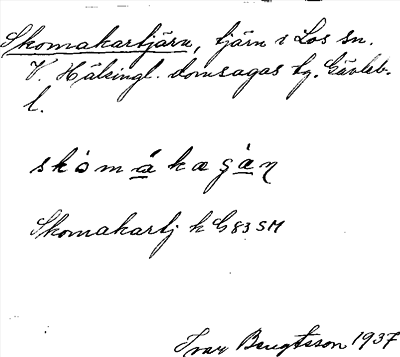 Skomakartjärn, tjärn i Los sn.
V. Hälsingl. domsagas tg. Gävleb.
l.
skòmákagàɳ
Skomakartj k G 83 SM
Ivar Bengtsson 1937